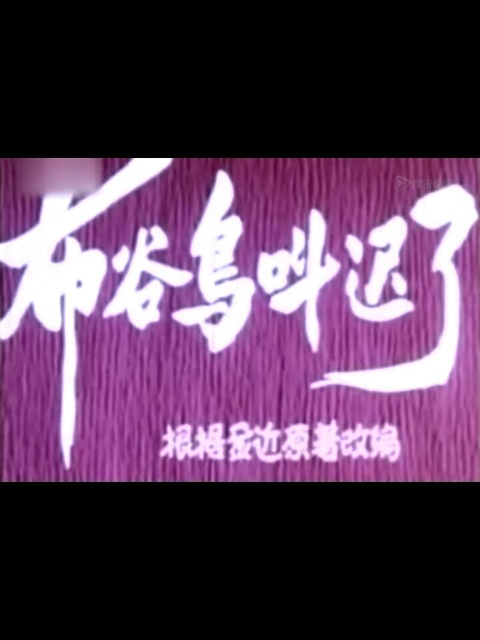 布谷鸟叫迟了
根据金近原著改编